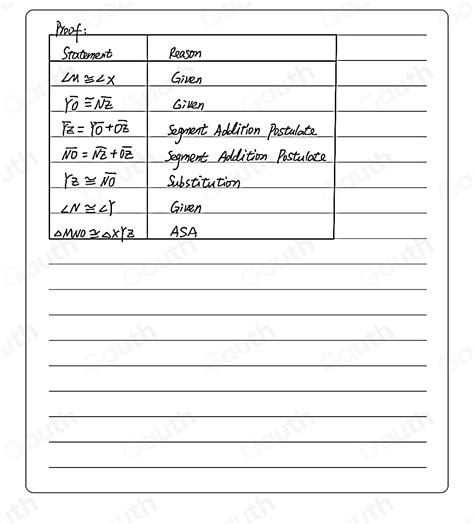 Proof:
Statement Reason
∠M ≅ ∠X Given
Y̅O̅ ≅ N̅Z̅ Given
Y̅Z̅ = Y̅O̅ + O̅Z̅ Segment Addition Postulate
N̅O̅ = N̅Z̅ + O̅Z̅ Segment Addition Postulate
YZ ≅ N̅O̅ Substitution
∠N ≅ ∠Y Given
△MNO ≅ △XYZ ASA
Gauth